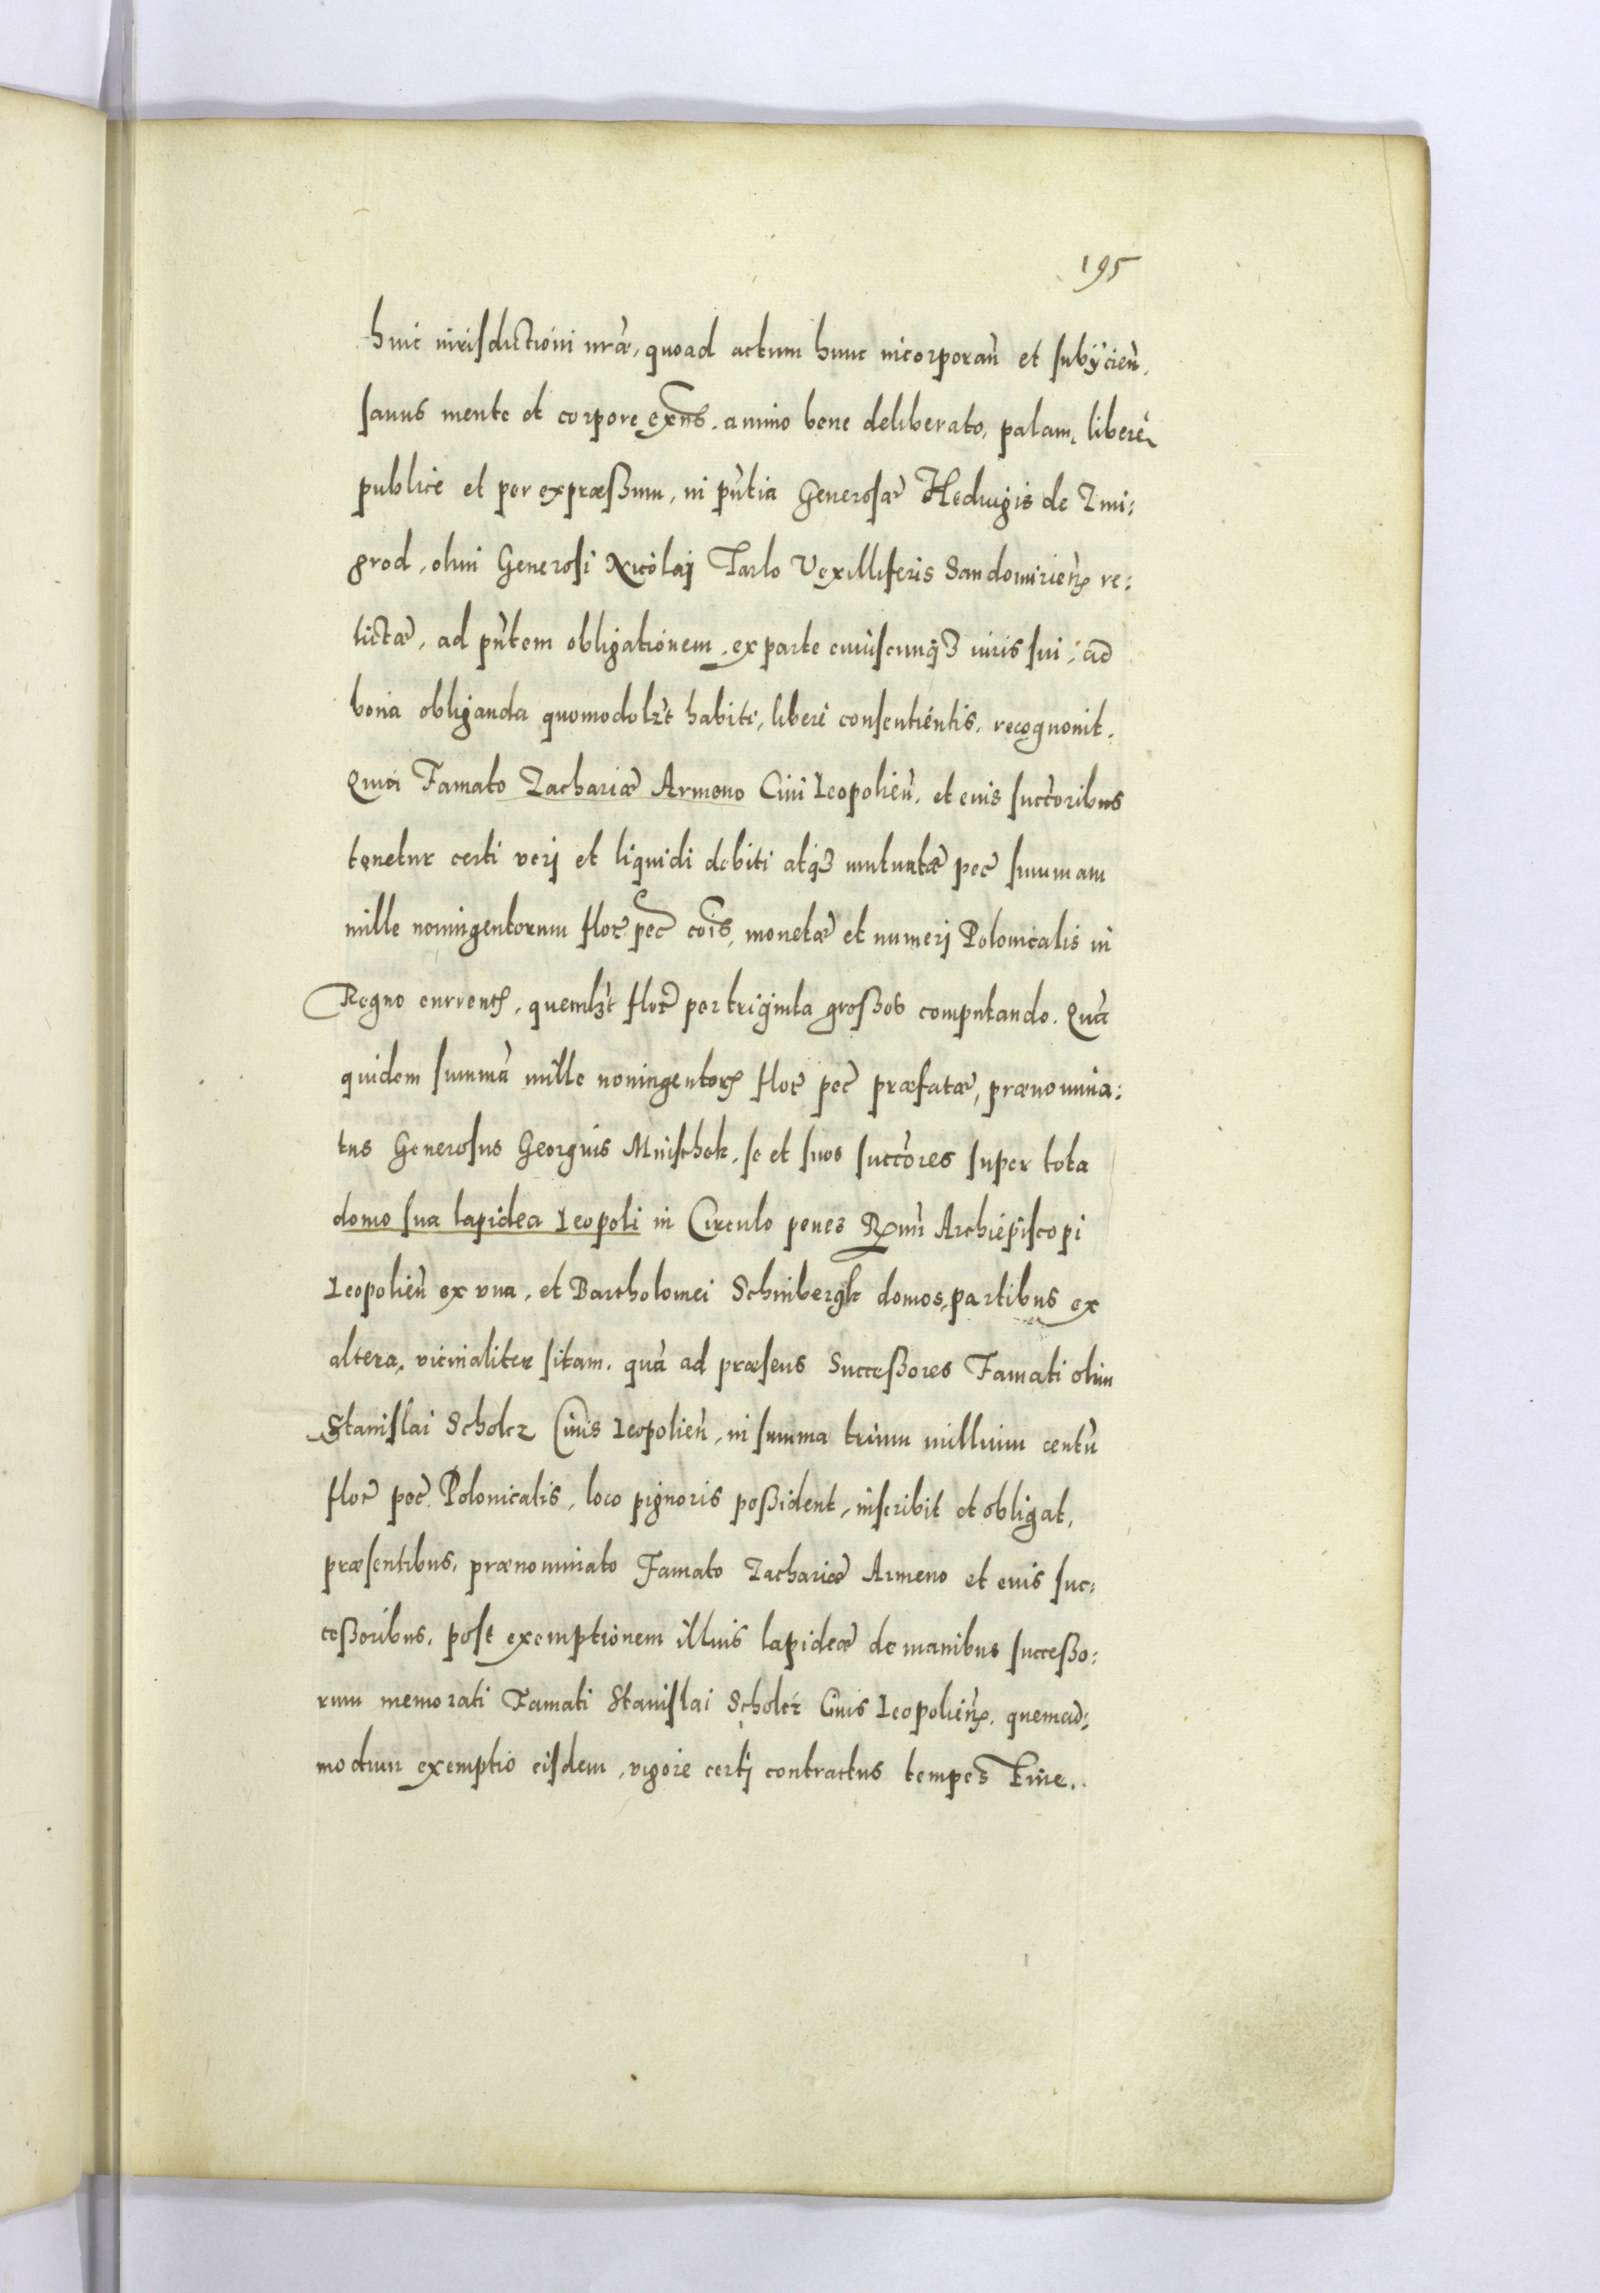 195
huic iurisdictioni nrãe, quoad actum hunc incorporañ et subÿcieñ,
sanus mente et corpore exñs, animo bene deliberato, palam, liberè
publicè et per expræßum, in pñtia Generosæ Hedwigis de Zmi:
grod, olim Generosi Nicolaj Tarlo Vexilliferis Sandomirieñ re:
lictæ, ad pñtem obligationem, ex parte cuiuscunqȝ iuris sui, ad
bona obliganda quomodolȝt habiti, liberè consentientis, recognouit.
Quia Famato Zachariæ Armeno Ciui Leopolieñ, et eius succoribus
tenetur certi verj et liquidi debiti atqȝ mutuatæ pec̃ summam
mille noningentorum flor̃ pec̃ cõis, monetæ et numerj Polonicalis in
Regno currentꝭ, quemlȝt flor̃ per triginta großos computando. Quã
quidem summã mille noningentorꝭ flor̃ pec̃ præfatæ, prænomina:
tus Generosus Georgius Mnischek, se et suos succores super tota
domo sua lapidea Leopoli in Circulo penes Rmi Archiepiscopi
Leopolieñ ex vna, et Bartholomei Schinbergk domos, partibus ex
altera, vicinaliter sitam, quã ad præsens Succeßores Famati olim
Stanislai Scholcz Ciuis Leopolieñ, in summa trium millium centũ
flor̃ pec̃ Polonicalis, loco pignoris poßident, inscribit et obligat,
præsentibus, prænominato Famato Zachariæ Armeno et eius suc:
ceßoribus, post exemptionem illius lapideæ de manibus succeßo:
rum memorati Famati Stanislai Scholcz Ciuis Leopolieñ, quemad:
modum exemptio eisdem, vigore certj contractus tempes Tiue.